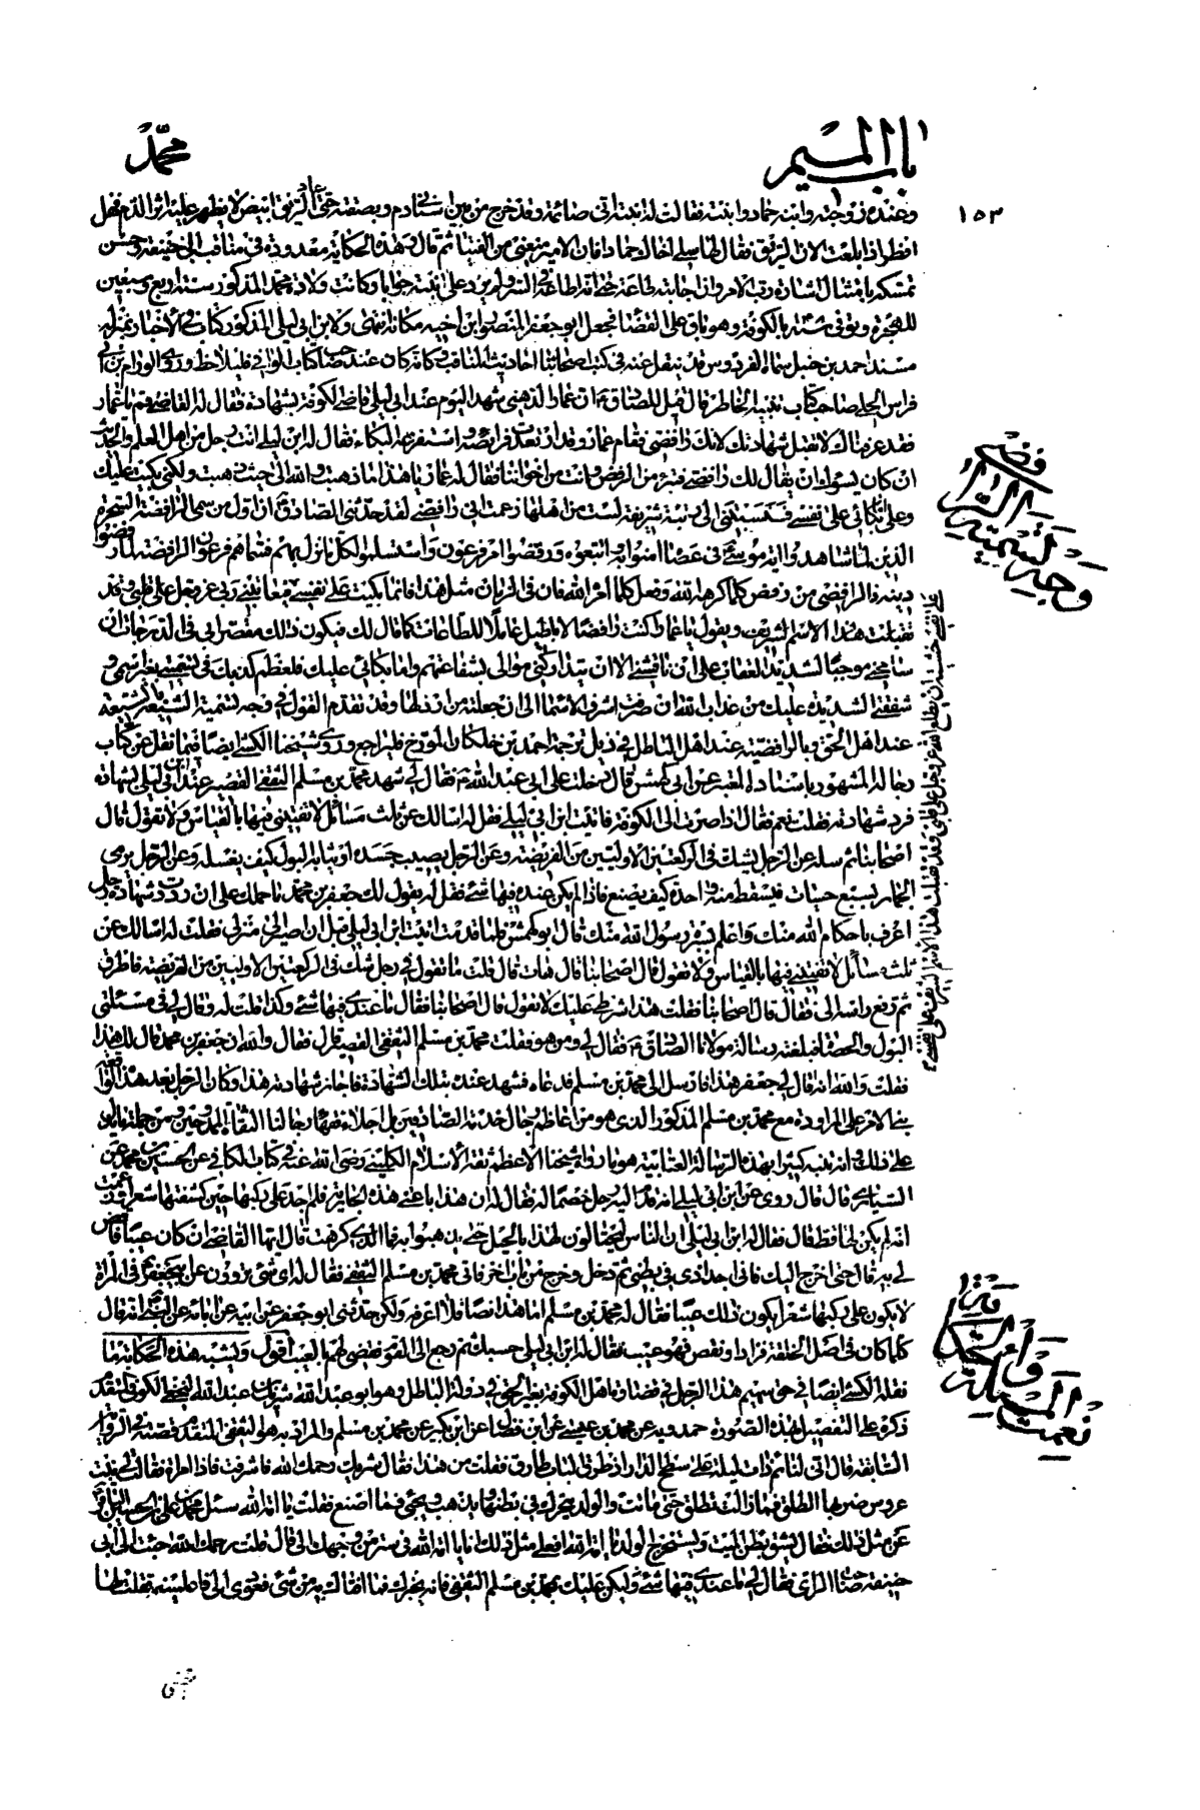 باب الميم
محمد
١٥٣
وعنده زوجته وابنه حماد وابنته فقالت له بنته انى صائمة وقد خرج من بين اسنانى دم وبصقته حتى عاد الريق ابيض لا يظهر عليه اثر الدم فهل
افطر اذا بلعت الان الريق فقال لها سلى اخاك حمادا فان الامير منعنى من الفتيا ثم قال وهذه الحكاية معدودة فى مناقب ابى حنيفة وحسن
تمسكه بامتثال اشارة رب الامر فان اجابته طاعة حتى انه اطاعه فى السر ولم يرد على ابنته جوابا وكانت ولادة محمد المذكور سنة اربع وسبعين
للهجرة وتوفى سنة بالكوفة وهو باق على القضاء فجعل ابو جعفر المنصور ابن اخيه مكانه انتهى ولابن ابى ليلى المذكور كتاب فى الاخبار بمنزلة
مسند احمد بن حنبل سماه الفردوس قد ينقل عنه فى كتب اصحابنا احاديث المناقب وكانه كان عند صاحب كتاب الوافى فليلاحظ وروى الورام بن ابى
فراس الحلى صاحب كتاب تنبيه الخاطر قال قيل للصادق ع ان عمارا الدهنى شهد اليوم عند ابى ليلى قاضى الكوفة بشهادة فقال له القاضى قم يا عمار
فقد عرفناك لا تقبل شهادتك لانك رافضى فقام عمار وقد ارتعدت فرائصه واستفرغه البكاء فقال له ابن ليلى انت رجل من اهل العلم والحديث
ان كان يسوئك ان يقال لك رافضى فتبرء من الرفض وانت من اخواننا فقال له عمار يا هذا ما ذهبت والله الى حيث ذهبت ولكنى بكيت عليك
وعلى اما بكائى على نفسى فنسبتنى الى رتبة شريفة لست من اهلها زعمت انى رافضى لقد حدثنى الصادق ع ان اول من سمى الرافضة السحرة
الذين لما شاهدوا اية موسى فى عصاه امنوا به واتبعوه ورفضوا امر فرعون واستسلموا لكل ما نزل بهم فسماهم فرعون الرافضة لما رفضوا
دينه فالرافضى من رفض كلما كره الله وفعل كلما امر الله فان فى الزمان مثل هذا فانما بكيت على نفسى
تقبلت هذا الاسم الشريف ويقول يا عمار اكنت رافضا لاباطيل عاملا للطاعات كما قال لك فيكون ذلك مقصرا بى فى الدرجات ان
سامحنى وموجبا لشديد العقاب على ان ناقشنى الا ان يتداركنى موالى بشفاعتهم واما بكائى عليك فلعظم كذبك فى تسميتى بغير اسمى و
شفقتى الشديدة عليك من عذاب الله ان صرفت اشرف الاسماء الى ان جعلته من ارذلها وقد تقدم القول فى وجه تسمية الشيعة بالشيعة
عند اهل الحق وبالرافضية عند اهل الباطل فى ذيل ترجمة احمد بن خلكان المورخ فليراجع وروى شيخنا الكشى ايضا فيما نقل عن كتاب
رجاله المشهور باسناده المعتبر عن ابى كهمس قال دخلت على ابى عبد الله ع فقال لى شهد محمد بن مسلم الثقفى القصير عند ابن ابى ليلى بشهادة
فرد شهادته فقلت نعم فقال اذا صرت الى الكوفة فائت ابن ابى ليلى فقل له اسالك عن ثلث مسائل لا تفتينى فيها بالقياس ولا تقول قال
اصحابنا ثم سله عن الرجل يشك فى الركعتين الاوليين من الفريضة وعن الرجل يصيب جسده او ثيابه البول كيف يغسله وعن الرجل يرمى
الجمار بسبع حصيات فيسقط منه واحدة كيف يصنع فاذا لم يكن عنده فيها شئ فقل له يقول لك جعفر بن محمد ما حملك على ان رددت شهادة رجل
اعرف باحكام الله منك واعلم بسيرة رسول الله منك قال ابو كهمس فلما قدمت اتيت ابن ابى ليلى قبل ان اصير الى منزلى فقلت له اسالك عن
ثلثة مسائل لا تفتينى فيها بالقياس ولا تقول قال اصحابنا قال هات قال قلت ما تقول فى رجل شك فى الركعتين الاوليين من الفريضة فاطرق
ثم رفع راسه الى فقال قال اصحابنا فقلت هذا شرطى عليك لا تقول قال اصحابنا فقال ما عندى فيها شئ وكذا قلت له وقال لى فى مسئلتى
البول والحصاة فبلغته رسالة مولانا الصادق ع فقال لى ومن هو فقلت محمد بن مسلم الثقفى القصير قال فقال والله ان جعفر بن محمد قال لك هذا
فقلت والله انه قال لى جعفر هذا فارسل الى محمد بن مسلم فدعاه فشهد عنده بتلك الشهادة فاجاز شهادته هذا وكان الرجل بعد هذه الواقعة
بنى الامر على المراودة مع محمد بن مسلم المذكور الذى هو من اعاظم رجال خدمة الصادقين بل اجلاء فقهاء رجالنا الثقات الممدوحين ومن جملة ما يدل
على ذلك وانه نبه كثيرا بهذه الرسالة العتابية هو ما رواه شيخنا الاعظم ثقة الاسلام الكلينى رضى الله عنه فى كتاب الكافى عن الحسين بن محمد عن
السيارى قال قال روى عن ابن ابى ليلى انه قدم اليه رجل خصما له فقال له ان هذا باعنى هذه الجارية فلم اجد على ركبها حين كشفتها شعرا وزعمت
انه لم يكن لها قط قال فقال له ابن ابى ليلى ان الناس ليحتالون لهذا بالحيل حتى يذهبوا به فما الذى كرهت قال ايها القاضى ان كان عيبا فاقض
لى به قال حتى اخرج اليك فانى اجد اذى فى بطنى ثم دخل وخرج من باب اخر فاتى محمد بن مسلم الثقفى فقال له اى شئ تروون عن ابى جعفر ع فى المراة
لا يكون على ركبها شعر ايكون ذلك عيبا فقال له محمد بن مسلم اما هذا نصا فلا اعرفه ولكن حدثنى ابو جعفر عن ابيه عن ابائه عن النبى انه قال
كلما كان فى اصل الخلقة فزاد او نقص فهو عيب فقال له ابن ابى ليلى حسبك ثم رجع الى القوم فقضى لهم بالعيب اقول ويشبه هذه الحكاية ما
نقله الكشى ايضا فى حق سهيم هذا الرجل فى قضاوة اهل الكوفة بغير الحق فى دولة الباطل وهو ابو عبد الله شريك بن عبد الله النخعى الكوفى المتقدم
ذكره على التفصيل بهذه الصورة حمدويه عن محمد بن عيسى عن ابن فضال عن ابن بكير عن محمد بن مسلم والمراد به هو الثقفى المتقدم قصته فى الرواية
السابقة قال انى لنائم ذات ليلة على سطح لنا اذ طرق الباب طارق فقلت من هذا فقال شريك رحمك الله فاشرفت فاذا امراة فقالت لى بنت
عروس ضربها الطلق فما زالت تطلق حتى ماتت والولد يتحرك فى بطنها ويذهب ويجئ فما اصنع فقلت يا امة الله سئل محمد بن على بن الحسين الباقر
عن مثل ذلك فقال يشق بطن الميت ويستخرج الولد يا امة الله افعلى مثل ذلك انا يا امة الله فى ستر من وجهك الى قال قلت رحمك الله جئت الى ابى
حنيفة صاحب الراى فقال لى ما عندى فيها شئ ولكن عليك بمحمد بن مسلم الثقفى فانه يخبرك فما افتاك به من شئ فعودى الى فاعلمينيه فقلت لها
وجه تسمية الرافضى